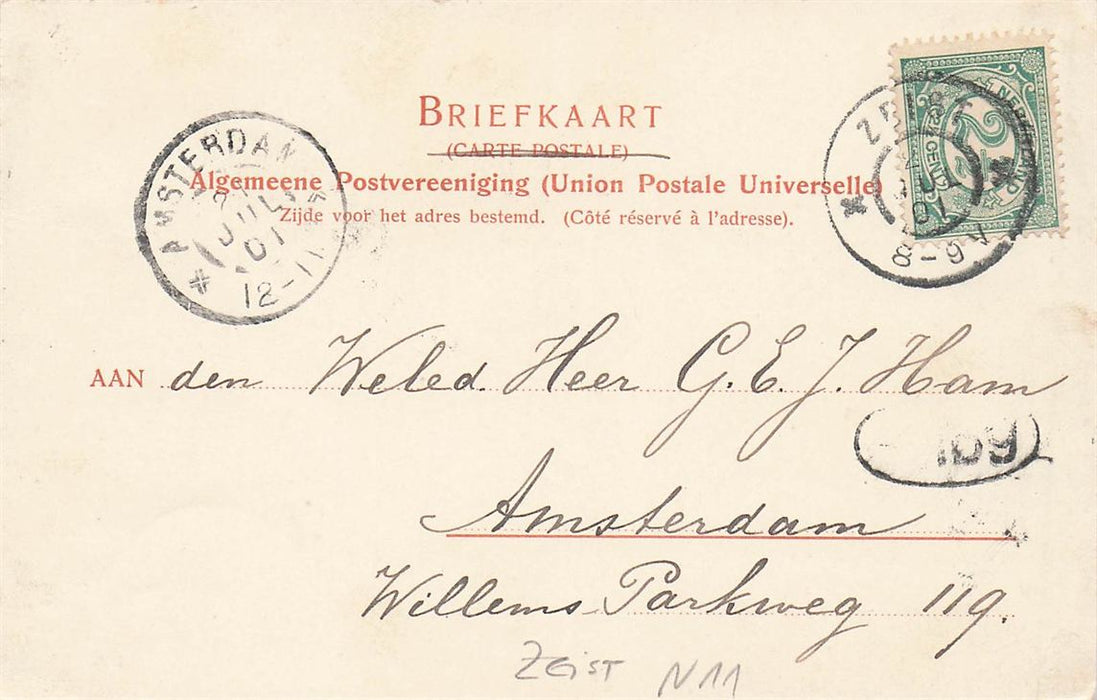 BRIEFKAART
(CARTE POSTALE)
Algemeene Postvereeniging (Union Postale Universelle)
Zijde voor het adres bestemd. (Côté réservé à l'adresse).
AMSTERDAM
JUL
01
12-1
8-9V
NEDERLAND
2½
CENT
AAN den Weled. Heer G. E. J. Ham
Amsterdam
Willems Parkweg 119.
Zeist N11